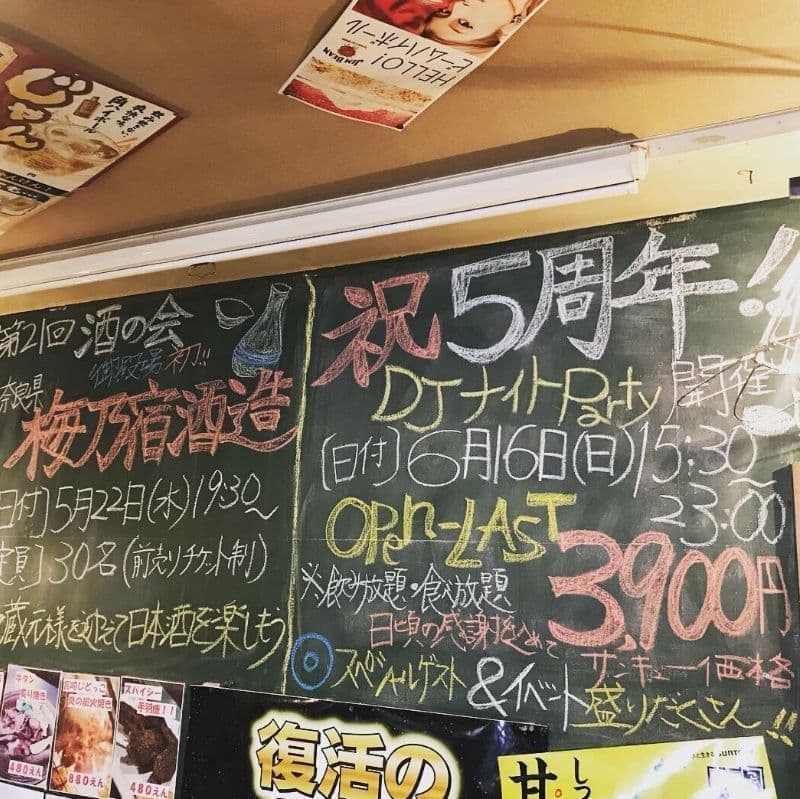 HELLO!
ビームハイボール
JIM BEAM
じゃん
角ハイボール
第21回 酒の会
御殿場 初!!
奈良県
梅乃宿酒造
日付] 5月22日(水) 19:30~
定員] 30名 (前売りチケット制)
蔵元様を迎えて日本酒を楽しもう
祝 5周年!
DJナイトParty 開催
[日付] 6月16日(日) 15:30~
23:00
OPen-LAST
※飲み放題・食べ放題
3,900円
日頃の感謝を込めて
サンキュー価格
◎スペシャルゲスト & イベント盛りだくさん!!
牛タン
炙り焼き
480えん
宮崎じとっこ
炭の炭火焼き
880えん
スパイシー
手羽焼!!
480えん
復活の
甘